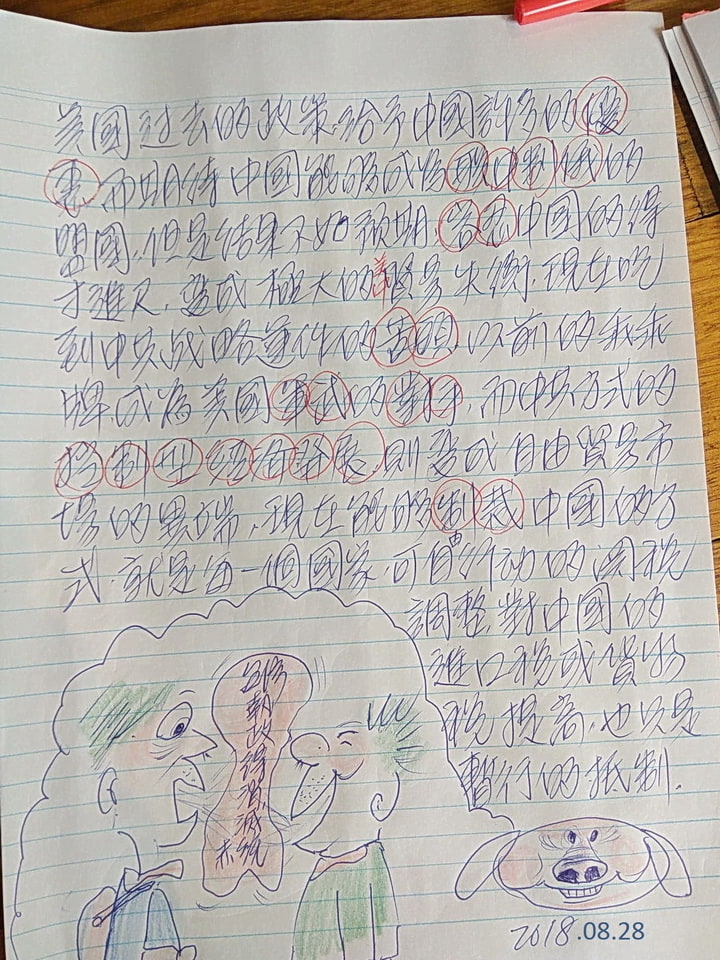 美國过去的政策給予中國許多的優
惠,而期待中國能夠成為聯中制俄的
盟國,但是結果不如預期,容忍中國的得
寸進尺,變成極大的美中貿易失衡,現在吃
到中共战略運作的苦頭,以前的乖乖
牌成為美國軍武的對手,而中共方式的
控制型經济發展,則變成自由貿易市
場的異端,現在能夠制裁中國的方
式,就是每一個國家,可自由行动的関稅
調整,對中國的
進口稅或貨物
稅提高,也只是
暫行的抵制.
執政
得
消
滅
2018.08.28